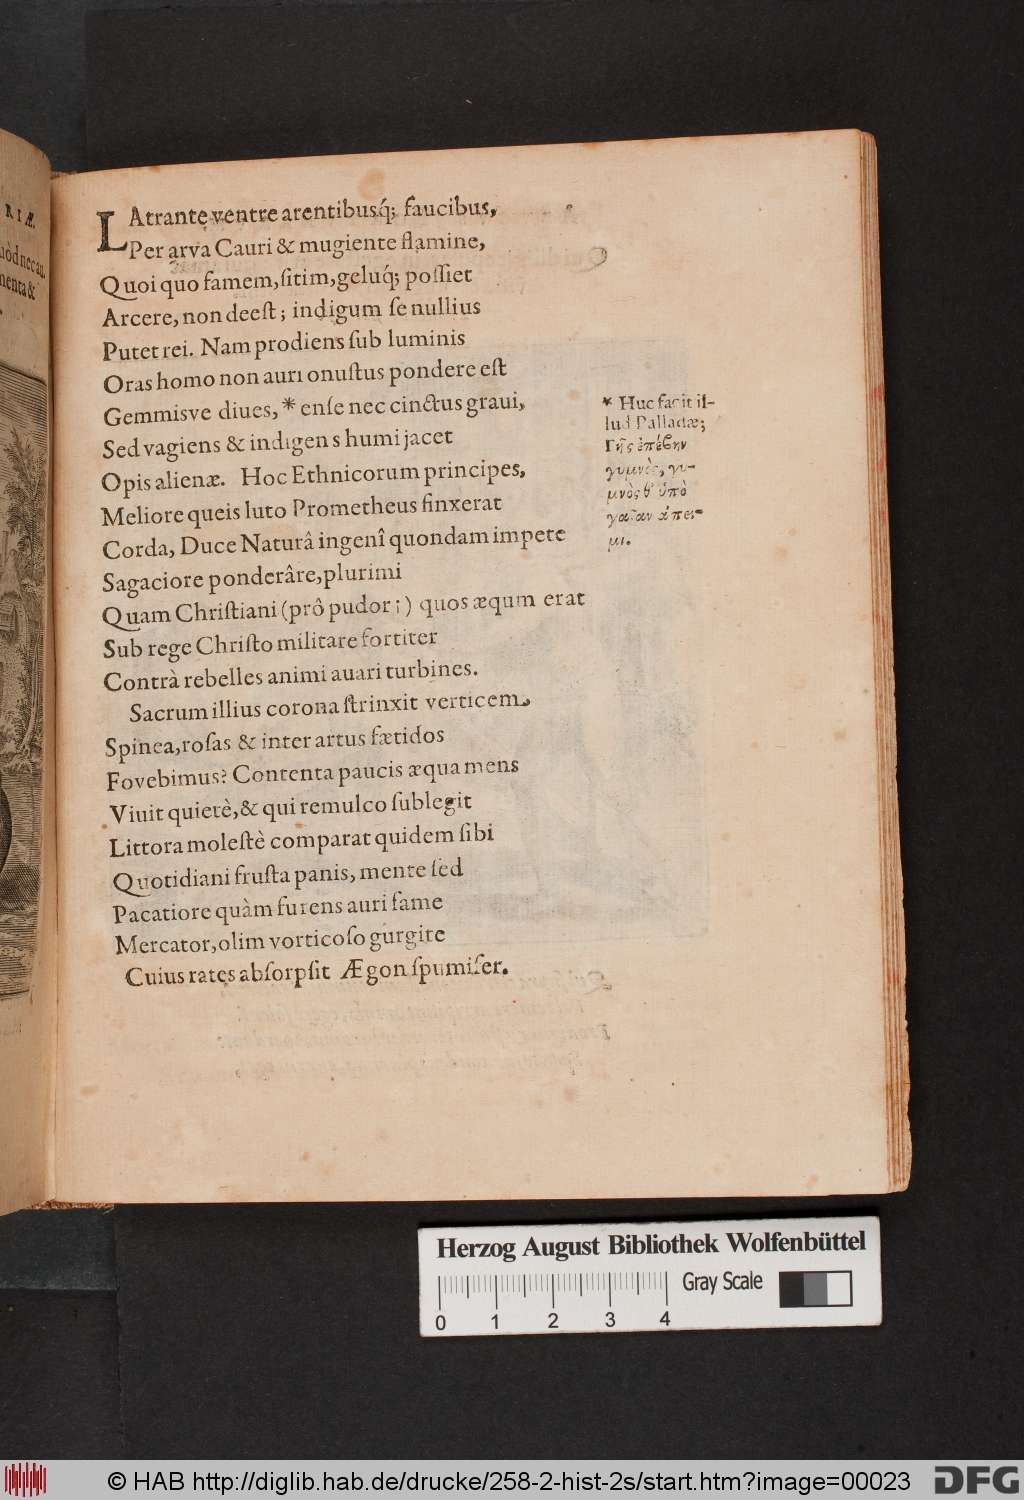 RIÆ.
uòd nec au.
menta &
LAtrante ventre arentibusq́; faucibus,
Per arva Cauri & mugiente flamine,
Quoi quo famem, ſitim, geluq́; poſſiet
Arcere, non deeſt; indigum ſe nullius
Putet rei. Nam prodiens ſub luminis
Oras homo non auri onuſtus pondere eſt
Gemmisve diues, * enſe nec cinctus graui,
Sed vagiens & indigens humi jacet
Opis alienæ. Hoc Ethnicorum principes,
Meliore queis luto Prometheus finxerat
Corda, Duce Naturâ ingenî quondam impete
Sagaciore ponderâre, plurimi
Quam Chriſtiani (prô pudor;) quos æqum erat
Sub rege Chriſto militare fortiter
Contrà rebelles animi auari turbines.
Sacrum illius corona ſtrinxit verticem
Spinea, roſas & inter artus fœtidos
Fovebimus? Contenta paucis æqua mens
Viuit quietè, & qui remulco ſublegit
Littora moleſtè comparat quidem ſibi
Quotidiani fruſta panis, mente ſed
Pacatiore quàm furens auri fame
Mercator, olim vorticoſo gurgite
Cuius rates abſorpſit Ægon ſpumifer.
* Huc facit il-
lud Palladæ;
Γῆς ἐπέβην
γυμνὸς, γυ-
μνὸς θ' ὑπὸ
γαῖαν ἄπει-
μι.
Herzog August Bibliothek Wolfenbüttel
Gray Scale
0 1 2 3 4
© HAB http://diglib.hab.de/drucke/258-2-hist-2s/start.htm?image=00023
DFG